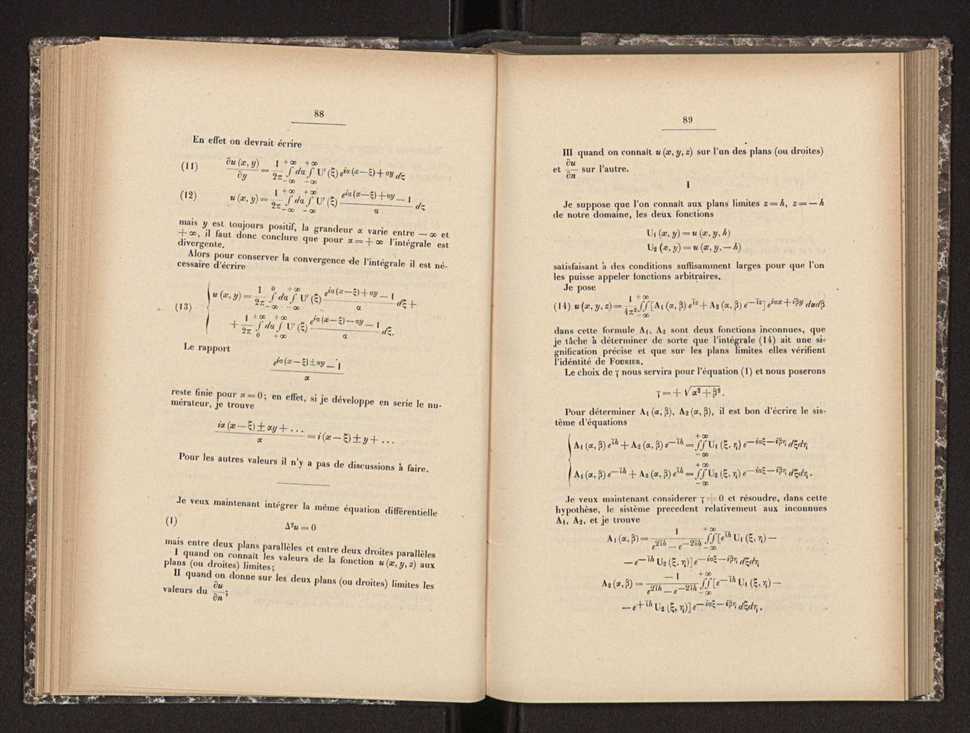 88
En effet on devrait écrire
(11) ∂u (x, y)/∂y = 1/2π ∫_{−∞}^{+∞} dα ∫_{−∞}^{+∞} U' (ξ) e^{iα(x−ξ)+αy} dξ
(12) u (x, y) = 1/2π ∫_{−∞}^{+∞} dα ∫_{−∞}^{+∞} U' (ξ) (e^{iα(x−ξ)+αy} − 1)/α dξ
mais y est toujours positif, la grandeur α varie entre — ∞ et
+ ∞, il faut donc conclure que pour α = + ∞ l'intégrale est
divergente.
Alors pour conserver la convergence de l'intégrale il est né-
cessaire d'écrire
(13) { u (x, y) = 1/2π ∫_{−∞}^{0} dα ∫_{−∞}^{+∞} U' (ξ) (e^{iα(x−ξ)+αy} − 1)/α dξ +
+ 1/2π ∫_{0}^{+∞} dα ∫_{+∞}^{+∞} U' (ξ) (e^{iα(x−ξ)−αy} − 1)/α dξ.
Le rapport
(e^{iα(x−ξ)±αy} − 1)/α
reste finie pour α = 0; en effet, si je développe en serie le nu-
mérateur, je trouve
(iα (x − ξ) ± αy + ...)/α = i (x − ξ) ± y + ...
Pour les autres valeurs il n'y a pas de discussions à faire.
Je veux maintenant intégrer la même équation différentielle
(1) Δ²u = 0
mais entre deux plans parallèles et entre deux droites parallèles
I quand on connaît les valeurs de la fonction u (x, y, z) aux
plans (ou droites) limites;
II quand on donne sur les deux plans (ou droites) limites les
valeurs du ∂u/∂n;
89
III quand on connaît u (x, y, z) sur l'un des plans (ou droites)
et ∂u/∂n sur l'autre.
I
Je suppose que l'on connaît aux plans limites z = h, z = — h
de notre domaine, les deux fonctions
U₁ (x, y) = u (x, y, h)
U₂ (x, y) = u (x, y, — h)
satisfaisant à des conditions suffisamment larges pour que l'on
les puisse appeler fonctions arbitraires.
Je pose
(14) u (x, y, z) = 1/4π² ∫∫_{−∞}^{+∞} [A₁ (α, β) e^{γz} + A₂ (α, β) e^{−γz}] e^{iαx+iβy} dαdβ
dans cette formule A₁, A₂ sont deux fonctions inconnues, que
je tâche à déterminer de sorte que l'intégrale (14) ait une si-
gnification précise et que sur les plans limites elles vérifient
l'idéntité de Fourier.
Le choix de γ nous servira pour l'équation (1) et nous poserons
γ = + √(α² + β²).
Pour déterminer A₁ (α, β), A₂ (α, β), il est bon d'écrire le sis-
tème d'équations
{ A₁ (α, β) e^{γh} + A₂ (α, β) e^{−γh} = ∫∫_{−∞}^{+∞} U₁ (ξ, η) e^{−iαξ−iβη} dξdη
A₁ (α, β) e^{−γh} + A₂ (α, β) e^{γh} = ∫∫_{−∞}^{+∞} U₂ (ξ, η) e^{−iαξ−iβη} dξdη.
Je veux maintenant considerer γ ≠ 0 et résoudre, dans cette
hypothèse, le sistème precedent relativemeut aux inconnues
A₁, A₂, et je trouve
A₁ (α, β) = 1/(e^{2γh} − e^{−2γh}) ∫∫_{−∞}^{+∞} [e^{γh} U₁ (ξ, η) −
− e^{−γh} U₂ (ξ, η)] e^{−iαξ−iβη} dξdη
A₂ (α, β) = −1/(e^{2γh} − e^{−2γh}) ∫∫_{−∞}^{+∞} [e^{−γh} U₁ (ξ, η) −
− e^{+γh} U₂ (ξ, η)] e^{−iαξ−iβη} dξdη.